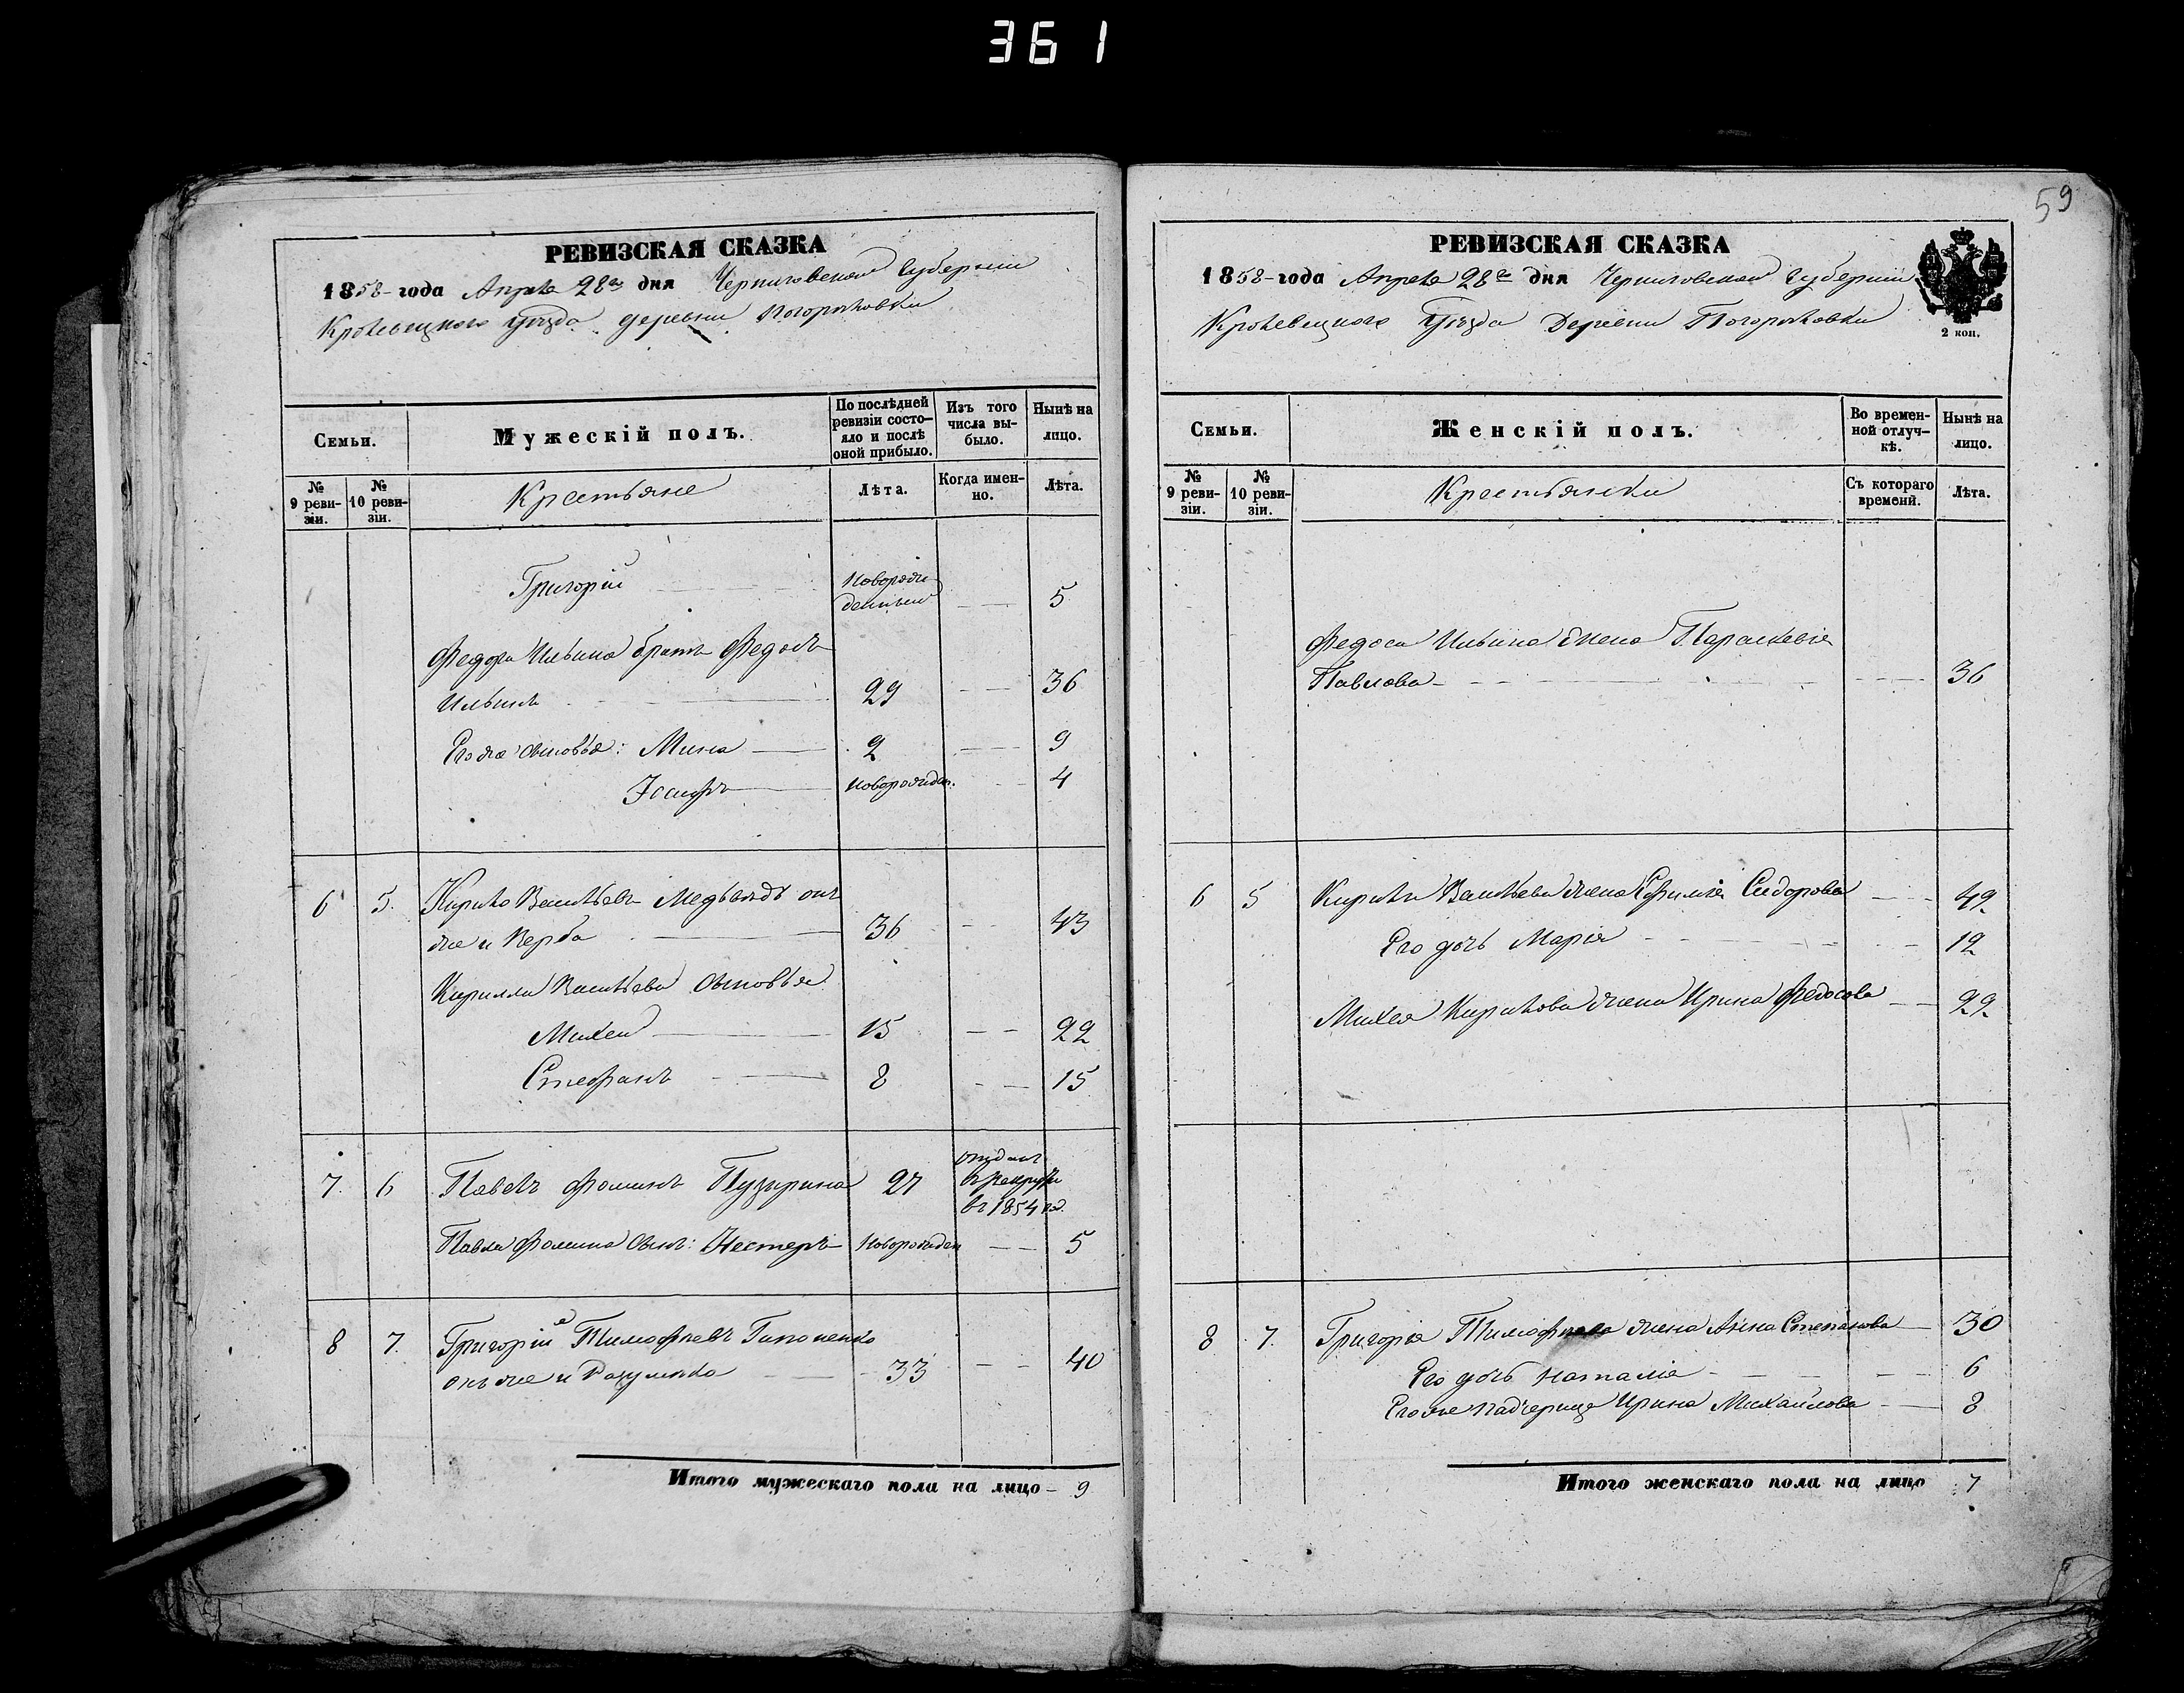 361
РЕВИЗСКАЯ СКАЗКА
1858 года Апреля 28го дня Черниговской Губернии
Кролевецкого Уѣзда деревни Погорѣловки
Семьи.
Мужескій полъ.
По послѣдней ревизіи состояло и послѣ оной прибыло.
Изъ того числа выбыло.
Нынѣ на лицо.
№ 9 ревизіи.
№ 10 ревизіи.
Крестьяне
Лѣта.
Когда именно.
Лѣта.
Григорій новорожденный 5
Федора Ильина братъ Федосъ
Ильинъ 29 36
Его же сыновья: Мина 2 9
Іосифъ новорожден. 4
6 5. Кирило Васильевъ Медвѣдь онъ
же и Верба 36 43
Кирилла Васильева сыновья
Михей 15 22
Стефанъ 8 15
7. 6 Павелъ Фоминъ Пузырина 27 отданъ в рекруты в 1854 год.
Павла Фомина сынъ: Нестеръ новорожден 5
8 7. Григорій Тимофѣевъ Гапоненко
онъ же и Разуменко 33 40
Итого мужескаго пола на лицо – 9
59
РЕВИЗСКАЯ СКАЗКА
1858 года Апреля 28го дня Черниговской Губерніи
Кролевецкого Уѣзда Деревни Погорѣловки
2 коп.
Семьи.
Женскій полъ.
Во временной отлучкѣ.
Нынѣ на лицо.
№ 9 ревизіи.
№ 10 ревизіи.
Крестьянки
Съ котораго времени.
Лѣта.
Федоса Ильина жена Параскевія
Павлова 36
6 5 Кирила Васильева жена Ефимія Сидорова 49
Его дочь Марія 12
Михея Кирилова жена Ирина Федосова 22
8 7. Григорія Тимофѣева жена Анна Степанова 30
Его дочь Наталія 6
Его же падчерица Ирина Михайлова 8
Итого женскаго пола на лицо 7